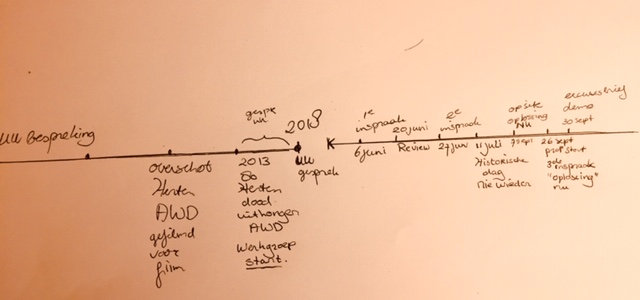 UU Bespreking
overschot
Herten
AWD
gefilmd
voor
film
gespr
UU
2013
86
Herten
dood
uithongeren
AWD
Werkgroep
start.
2018
UU
gesprek
1e
inspraak
6 juni
20 juni
Review
2e
inspraak
27 juni
11 juli
Historische
dag
nie wieder
op site
oplossing
NU
26 sept
3de
inspraak
"oplossing"
nu
demo
30 sept